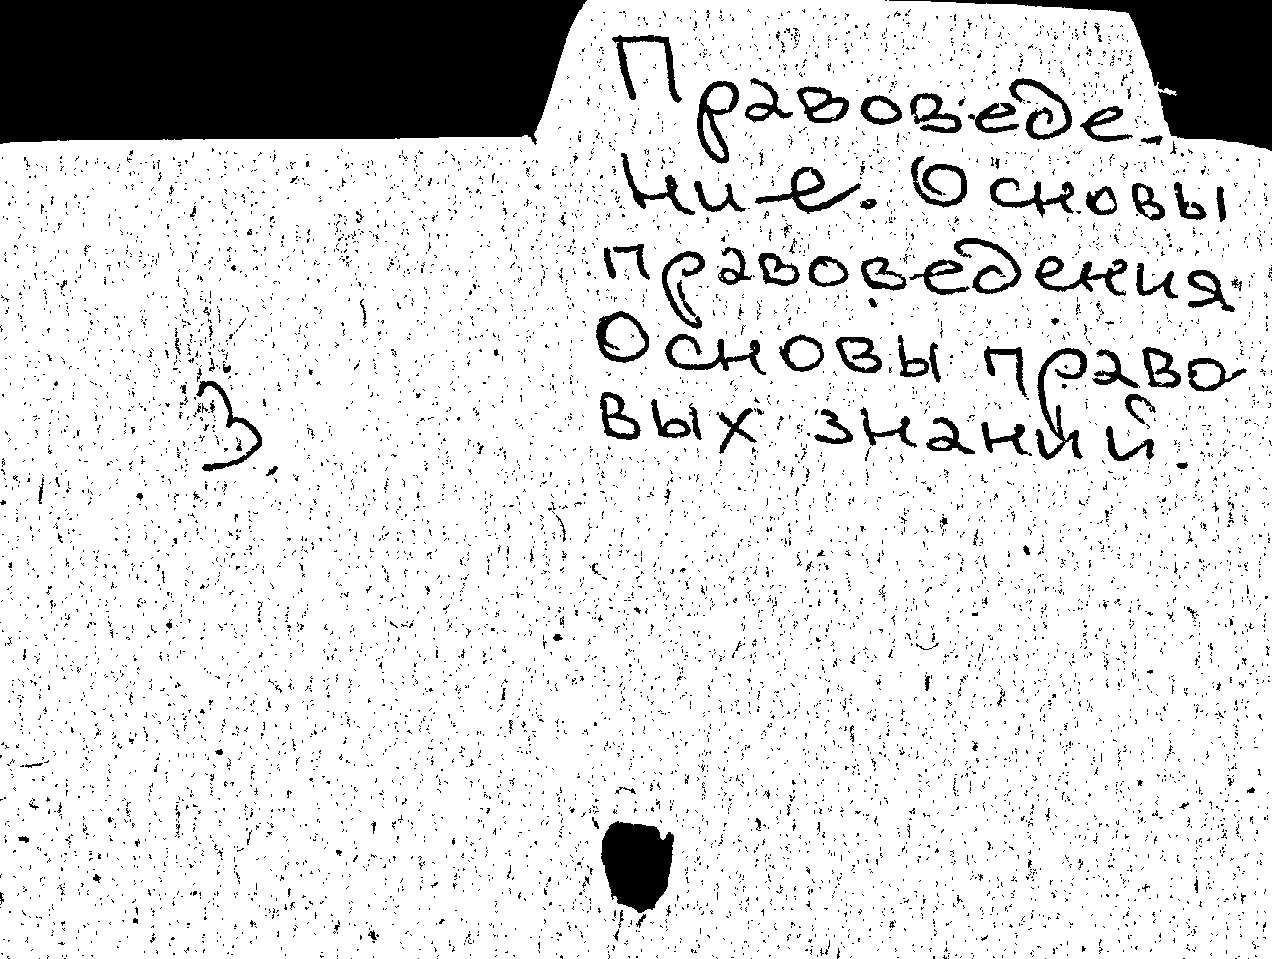 Правоведе-
ние. Основы
правоведения
Основы право
вых знаний.
3.